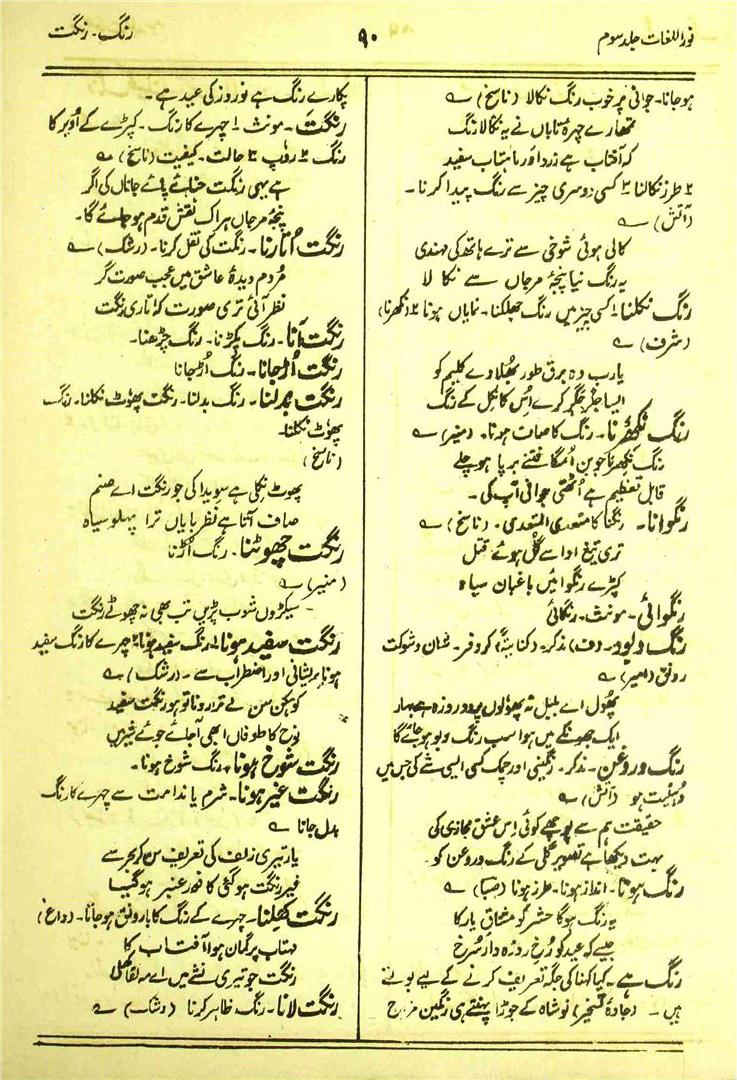 نور اللغات جلد سوم
۹۰
رنگ - رنگت
ہو جانا۔ جوانی پر خوب رنگ نکالا (ناسخ) ؎
تمھارے چہرہ تاباں نے یہ نکالا رنگ
کہ آفتاب ہے زرد اور ماہتاب سفید
۲ طرز نکالنا ۳ کسی دوسری چیز سے رنگ پیدا کرنا۔
(آتش) ؎
کالی ہوئی شوخی سے ترے ہاتھ کی مہندی
یہ رنگ نیا پنجۂ مرجاں سے نکالا
رنگ نکلنا۔ ۱ کسی چیز میں رنگ جھلکنا۔ نمایاں ہونا ۲ (نکھرنا)
(شرف) ؎
یارب وہ برق طور بھلا دے کلیم کو
ایسا جز جگر کرے اس کا نکل کے رنگ
رنگ نکھرنا۔ رنگ کا صاف ہونا۔ (منیر) ؎
رنگ نکھرا تو جوبن اُمگا فتنے برپا ہو چلے
قابل تعظیم ہے اُٹھتی جوانی آپ کی۔
رنگوانا۔ رنگنا کا متعدی المتعدی۔ (ناسخ) ؎
تری تیغ ادا سے گل ہوئے قتل
کپڑے رنگوائیں باغبان سیاہ
رنگوائی۔ مونث۔ رنگائی
رنگ و بو۔ (ف) مذکر۔ (کنایۃً) کروفر۔ شان و شوکت
رونق (امیر) ؎
پھول اے بلبل نہ پھولوں پر دو روزہ ہے بہار
ایک جھونکے میں ہوا سب رنگ و بو ہو جائے گا
رنگ و روغن۔ مذکر۔ رنگینی اور چمک کسی ایسی شے کی جس میں
دہنیت ہو (آتش) ؎
حقیقت ہم سے پوچھے کوئی اِس عشق مجازی کی
بہت دیکھا ہے تصویر گلی کے رنگ و روغن کو
رنگ ہونا۔ انداز ہونا۔ طرز ہونا (صبا) ؎
یہ رنگ ہوگا حشر کو مشتاق یار کا
جیسے کہ عید کو رُخ روزہ دار سُرخ
رنگ ہے۔ کیا کہنا کی جگہ تعریف کرنے کے لیے بولتے
ہیں۔ (جادۂ تسخیر) نوشاہ کے جوڑا پہنتے ہی رنگین مزاج
پکارے رنگ ہے نوروز کی عید ہے۔
رنگت۔ مونث۔ ۱ چہرے کا رنگ۔ کپڑے کے اُوپر کا
رنگ ۲ روپ ۳ حالت۔ کیفیت (ناسخ) ؎
ہے یہی رنگت حنائے پائے جاناں کی اگر
پنجۂ مرجاں ہر اک نقش قدم ہو جائے گا۔
رنگت اُتارنا۔ رنگت کی نقل کرنا۔ (رشک) ؎
مردم دیدۂ عاشق میں عجب صورت گر
نظر آئی تری صورت کہ اُتاری رنگت
رنگت آنا۔ رنگ پکڑنا۔ رنگ چڑھنا۔
رنگت اُڑ جانا۔ رنگ اُڑ جانا
رنگت بدلنا۔ رنگ بدلنا۔ رنگت پھوٹ نکلنا۔ رنگ
پھوٹ نکلنا۔
(ناسخ)
پھوٹ نکلی ہے سویدا کی جو رنگت اے صنم
صاف آتا ہے نظر بایاں ترا پہلو سیاہ
رنگت چھوٹنا۔ رنگ اُڑنا
(منیر) ؎
سیکڑوں شوب پڑیں تب بھی نہ چھوٹے رنگت
رنگت سفید ہونا۔ ۱ رنگ سفید ہونا ۲ چہرے کا رنگ سفید
ہونا پریشانی اور اضطراب سے۔ (رشک) ؎
کوہکن سن لے ترا رونا تو ہو رنگت سفید
نوح کا طوفاں ابھی آجائے جوئے شیر میں
رنگت شوخ ہونا۔ رنگ شوخ ہونا۔
رنگت غیر ہونا۔ شرم یا ندامت سے چہرے کا رنگ
بدل جانا ؎
یار تیری زلف کی تعریف سن کر بحر سے
غیر رنگت ہو گئی کافور عنبر ہو گیا
رنگت کھلنا۔ چہرے کے رنگ کا بارونق ہو جانا۔ (داغ)
مہتاب پر گمان ہوا آفتاب کا
رنگت جو تیری نشے میں اے مہ لقا کھلی
رنگت لانا۔ رنگ ظاہر کرنا (رشک) ؎